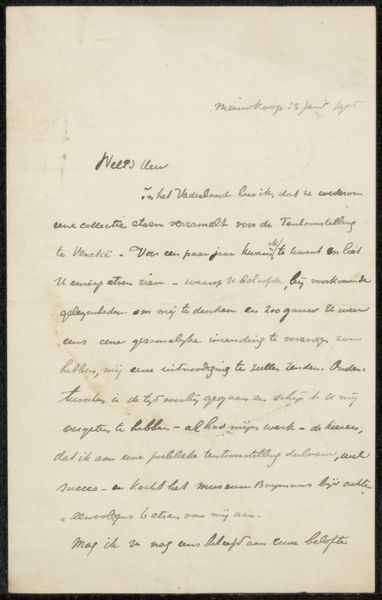 Nieuwkoop 13 Jan 1905
WelEd Heer
In het Vaderland las ik, dat U wederom
eene collectie etsen verzamelt voor de Tentoonstelling
te Venetië - Voor een paar jaar kwam ik U en liet
U eenige etsen zien - waarop U beloofde, bij voorkomende
gelegenheden om mij te denken en zoo gauw U weer
eens eene gezamelijke inzending te verzorgen zou
hebben, mij eene uitnoodiging te zullen zenden. Onder-
tusschen is de tijd voorbij gegaan en schijnt U mij
vergeten te hebben - al had mijn werk - de keeren,
dat ik aan eene publieke tentoonstelling deelnam, wel
succes - en kocht het museum Boymans bijv
6 etsen van mij aan.
Mag ik U nog eens beleefd aan uwe belofte